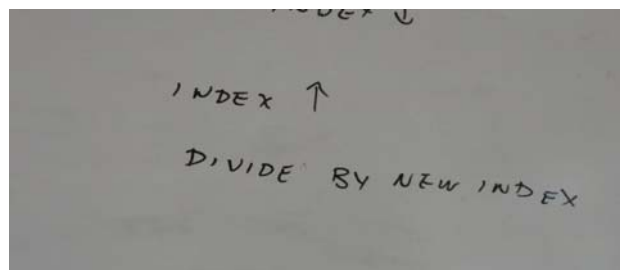 INDEX ↓
INDEX ↑
DIVIDE BY NEW INDEX